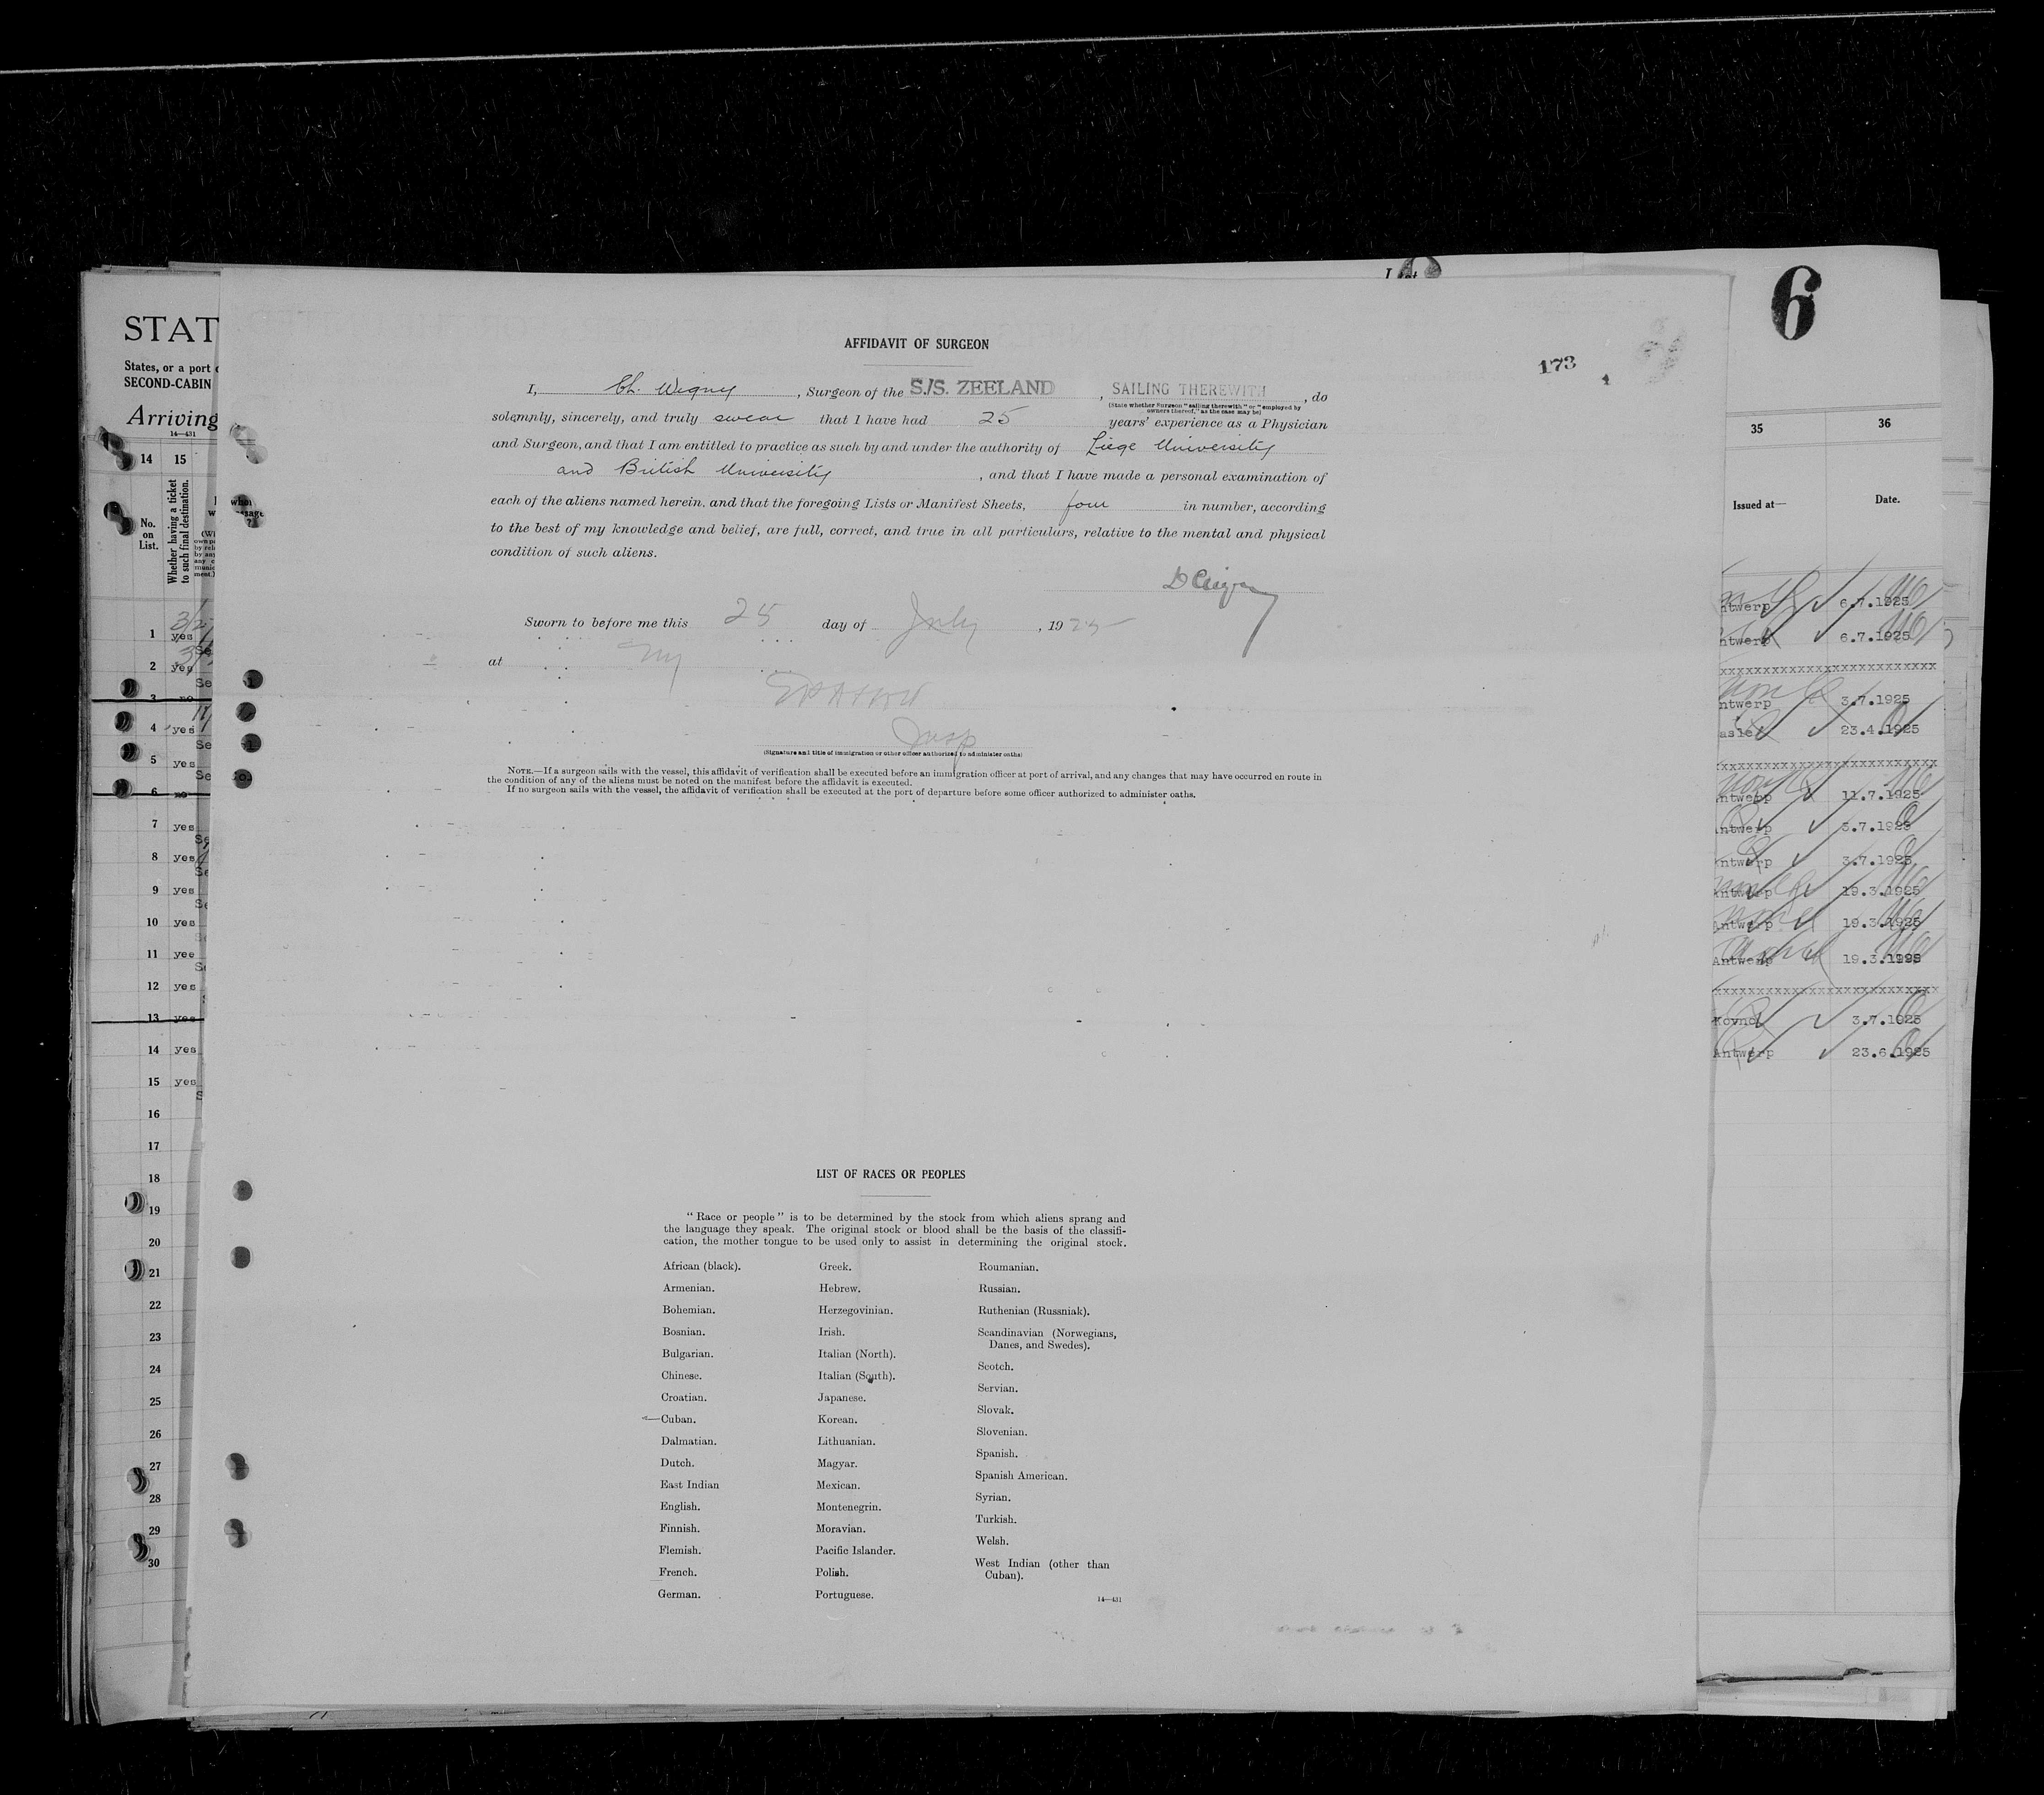 6
173
AFFIDAVIT OF SURGEON
I, Ch. Wigny, Surgeon of the S/S. ZEELAND, SAILING THEREWITH, do
(State whether Surgeon "sailing therewith" or "employed by owners thereof," as the case may be)
solemnly, sincerely, and truly swear that I have had 25 years' experience as a Physician
and Surgeon, and that I am entitled to practice as such by and under the authority of Liege University
and British University, and that I have made a personal examination of
each of the aliens named herein. and that the foregoing Lists or Manifest Sheets, four in number, according
to the best of my knowledge and belief, are full, correct, and true in all particulars, relative to the mental and physical
condition of such aliens.
Sworn to before me this 25 day of July, 1925
at NY
Insp
(Signature and title of immigration or other officer authorized to administer oaths)
NOTE.—If a surgeon sails with the vessel, this affidavit of verification shall be executed before an immigration officer at port of arrival, and any changes that may have occurred en route in
the condition of any of the aliens must be noted on the manifest before the affidavit is executed.
If no surgeon sails with the vessel, the affidavit of verification shall be executed at the port of departure before some officer authorized to administer oaths.
LIST OF RACES OR PEOPLES
"Race or people" is to be determined by the stock from which aliens sprang and
the language they speak. The original stock or blood shall be the basis of the classifi-
cation, the mother tongue to be used only to assist in determining the original stock.
African (black).
Armenian.
Bohemian.
Bosnian.
Bulgarian.
Chinese.
Croatian.
Cuban.
Dalmatian.
Dutch.
East Indian
English.
Finnish.
Flemish.
French.
German.
Greek.
Hebrew.
Herzegovinian.
Irish.
Italian (North).
Italian (South).
Japanese.
Korean.
Lithuanian.
Magyar.
Mexican.
Montenegrin.
Moravian.
Pacific Islander.
Polish.
Portuguese.
Roumanian.
Russian.
Ruthenian (Russniak).
Scandinavian (Norwegians,
Danes, and Swedes).
Scotch.
Servian.
Slovak.
Slovenian.
Spanish.
Spanish American.
Syrian.
Turkish.
Welsh.
West Indian (other than
Cuban).
14—431
STAT
States, or a port
SECOND-CABIN
Arriving
14—431
14 15
No.
on
List.
Whether having a ticket
to such final destination.
1 yes
2 yes
3 no
4 yes
5 yes
6 no
7 yes
8 yes
9 yes
10 yes
11 yee
12 yes
13 yes
14 yes
15 yes
16
17
18
19
20
21
22
23
24
25
26
27
28
29
30
35 36
Issued at— Date.
ntwerp 6.7.1925
ntwerp 6.7.1925
xxxxxxxxxxxxxxxxxxxxxxxxxx
ntwerp 3.7.1925
asle 23.4.1925
xxxxxxxxxxxxxxxxxxxxxxxxxx
ntwerp 11.7.1925
ntwerp 3.7.1925
ntwerp 3.7.1925
Antwerp 19.3.1925
Antwerp 19.3.1925
Antwerp 19.3.1925
xxxxxxxxxxxxxxxxxxxxxxxxxx
Kovno 3.7.1925
Antwerp 23.6.1925